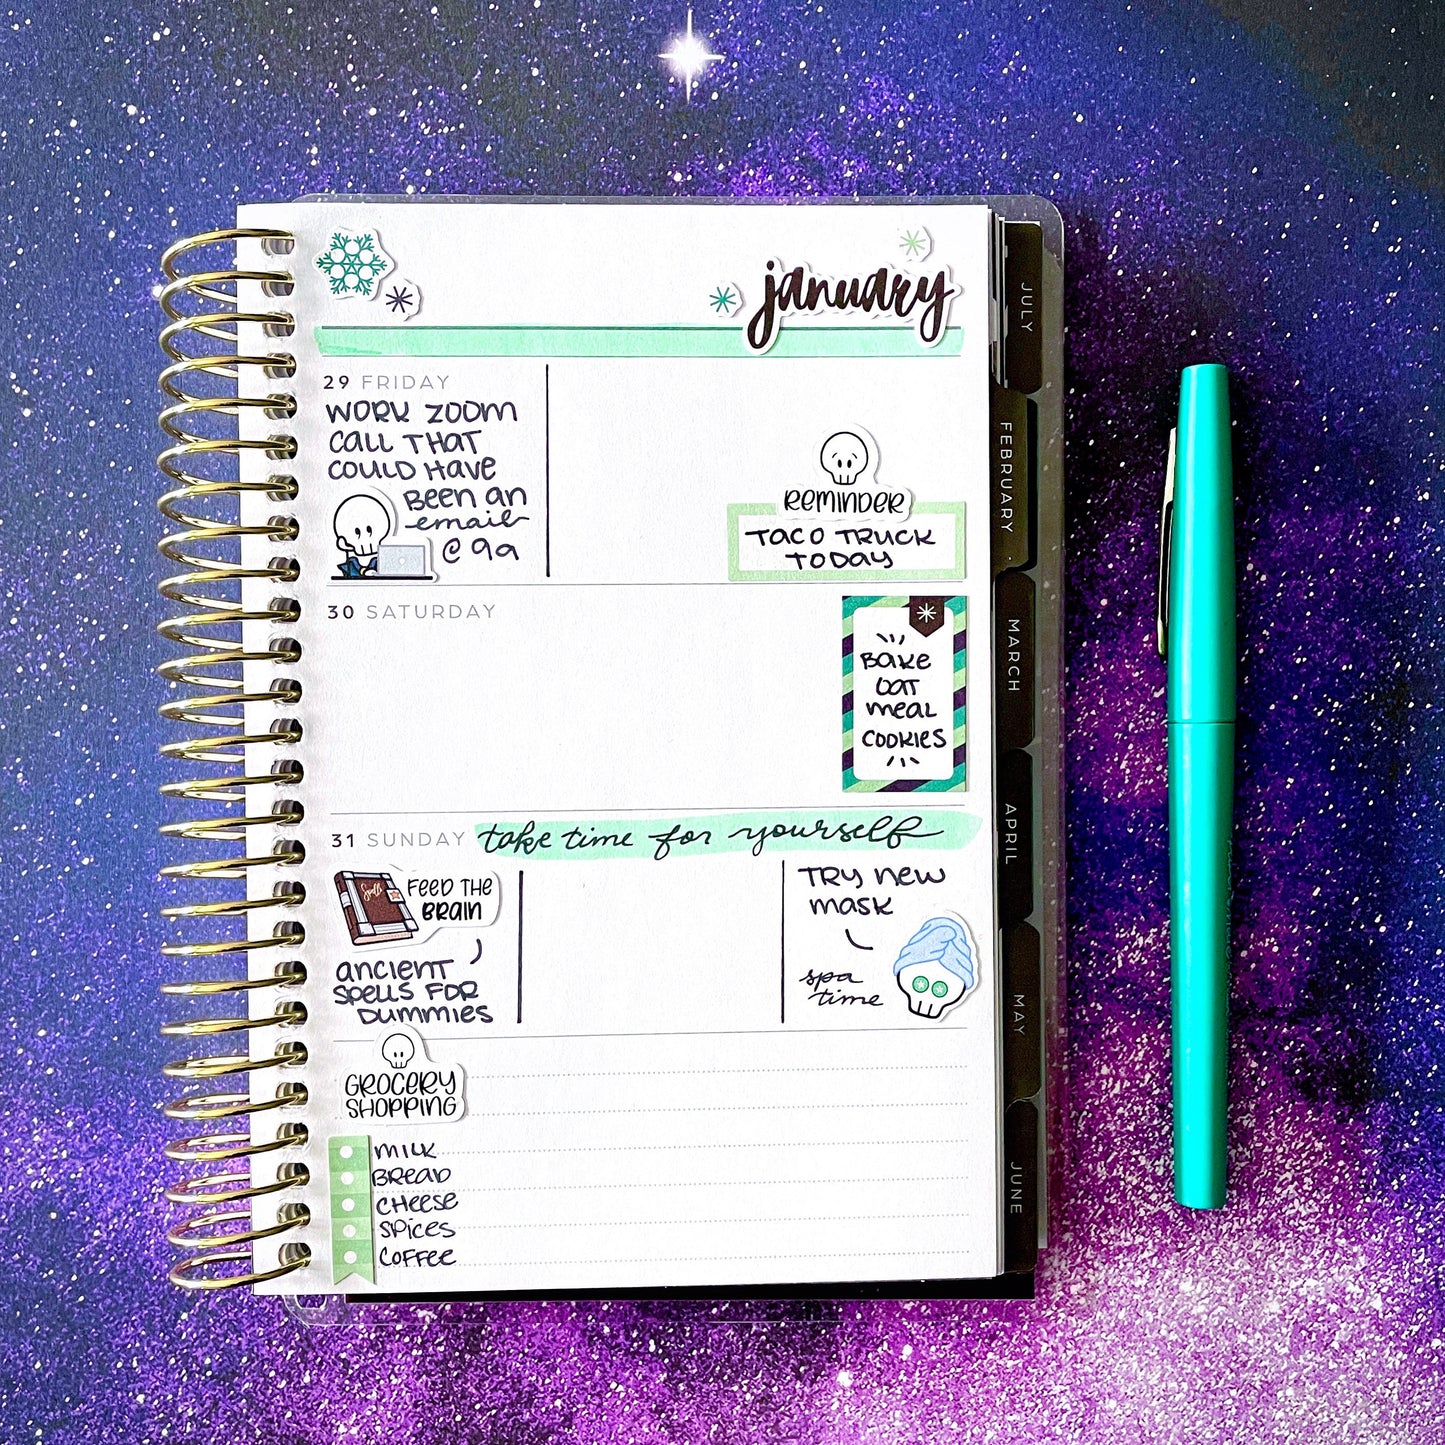 january
29 FRIDAY
WORK ZOOM
CALL THAT
COULD HAVE
BEEN AN
email
@ 9a
REMINDER
TACO TRUCK
TODAY
30 SATURDAY
BAKE
OAT
MEAL
COOKIES
31 SUNDAY take time for yourself
Spells
FEED THE
BRAIN
ANCIENT
SPELLS FOR
DUMMIES
TRY NEW
MASK
spa
time
GROCERY
SHOPPING
MILK
BREAD
CHEESE
SPICES
COFFEE
JULY
FEBRUARY
MARCH
APRIL
MAY
JUNE